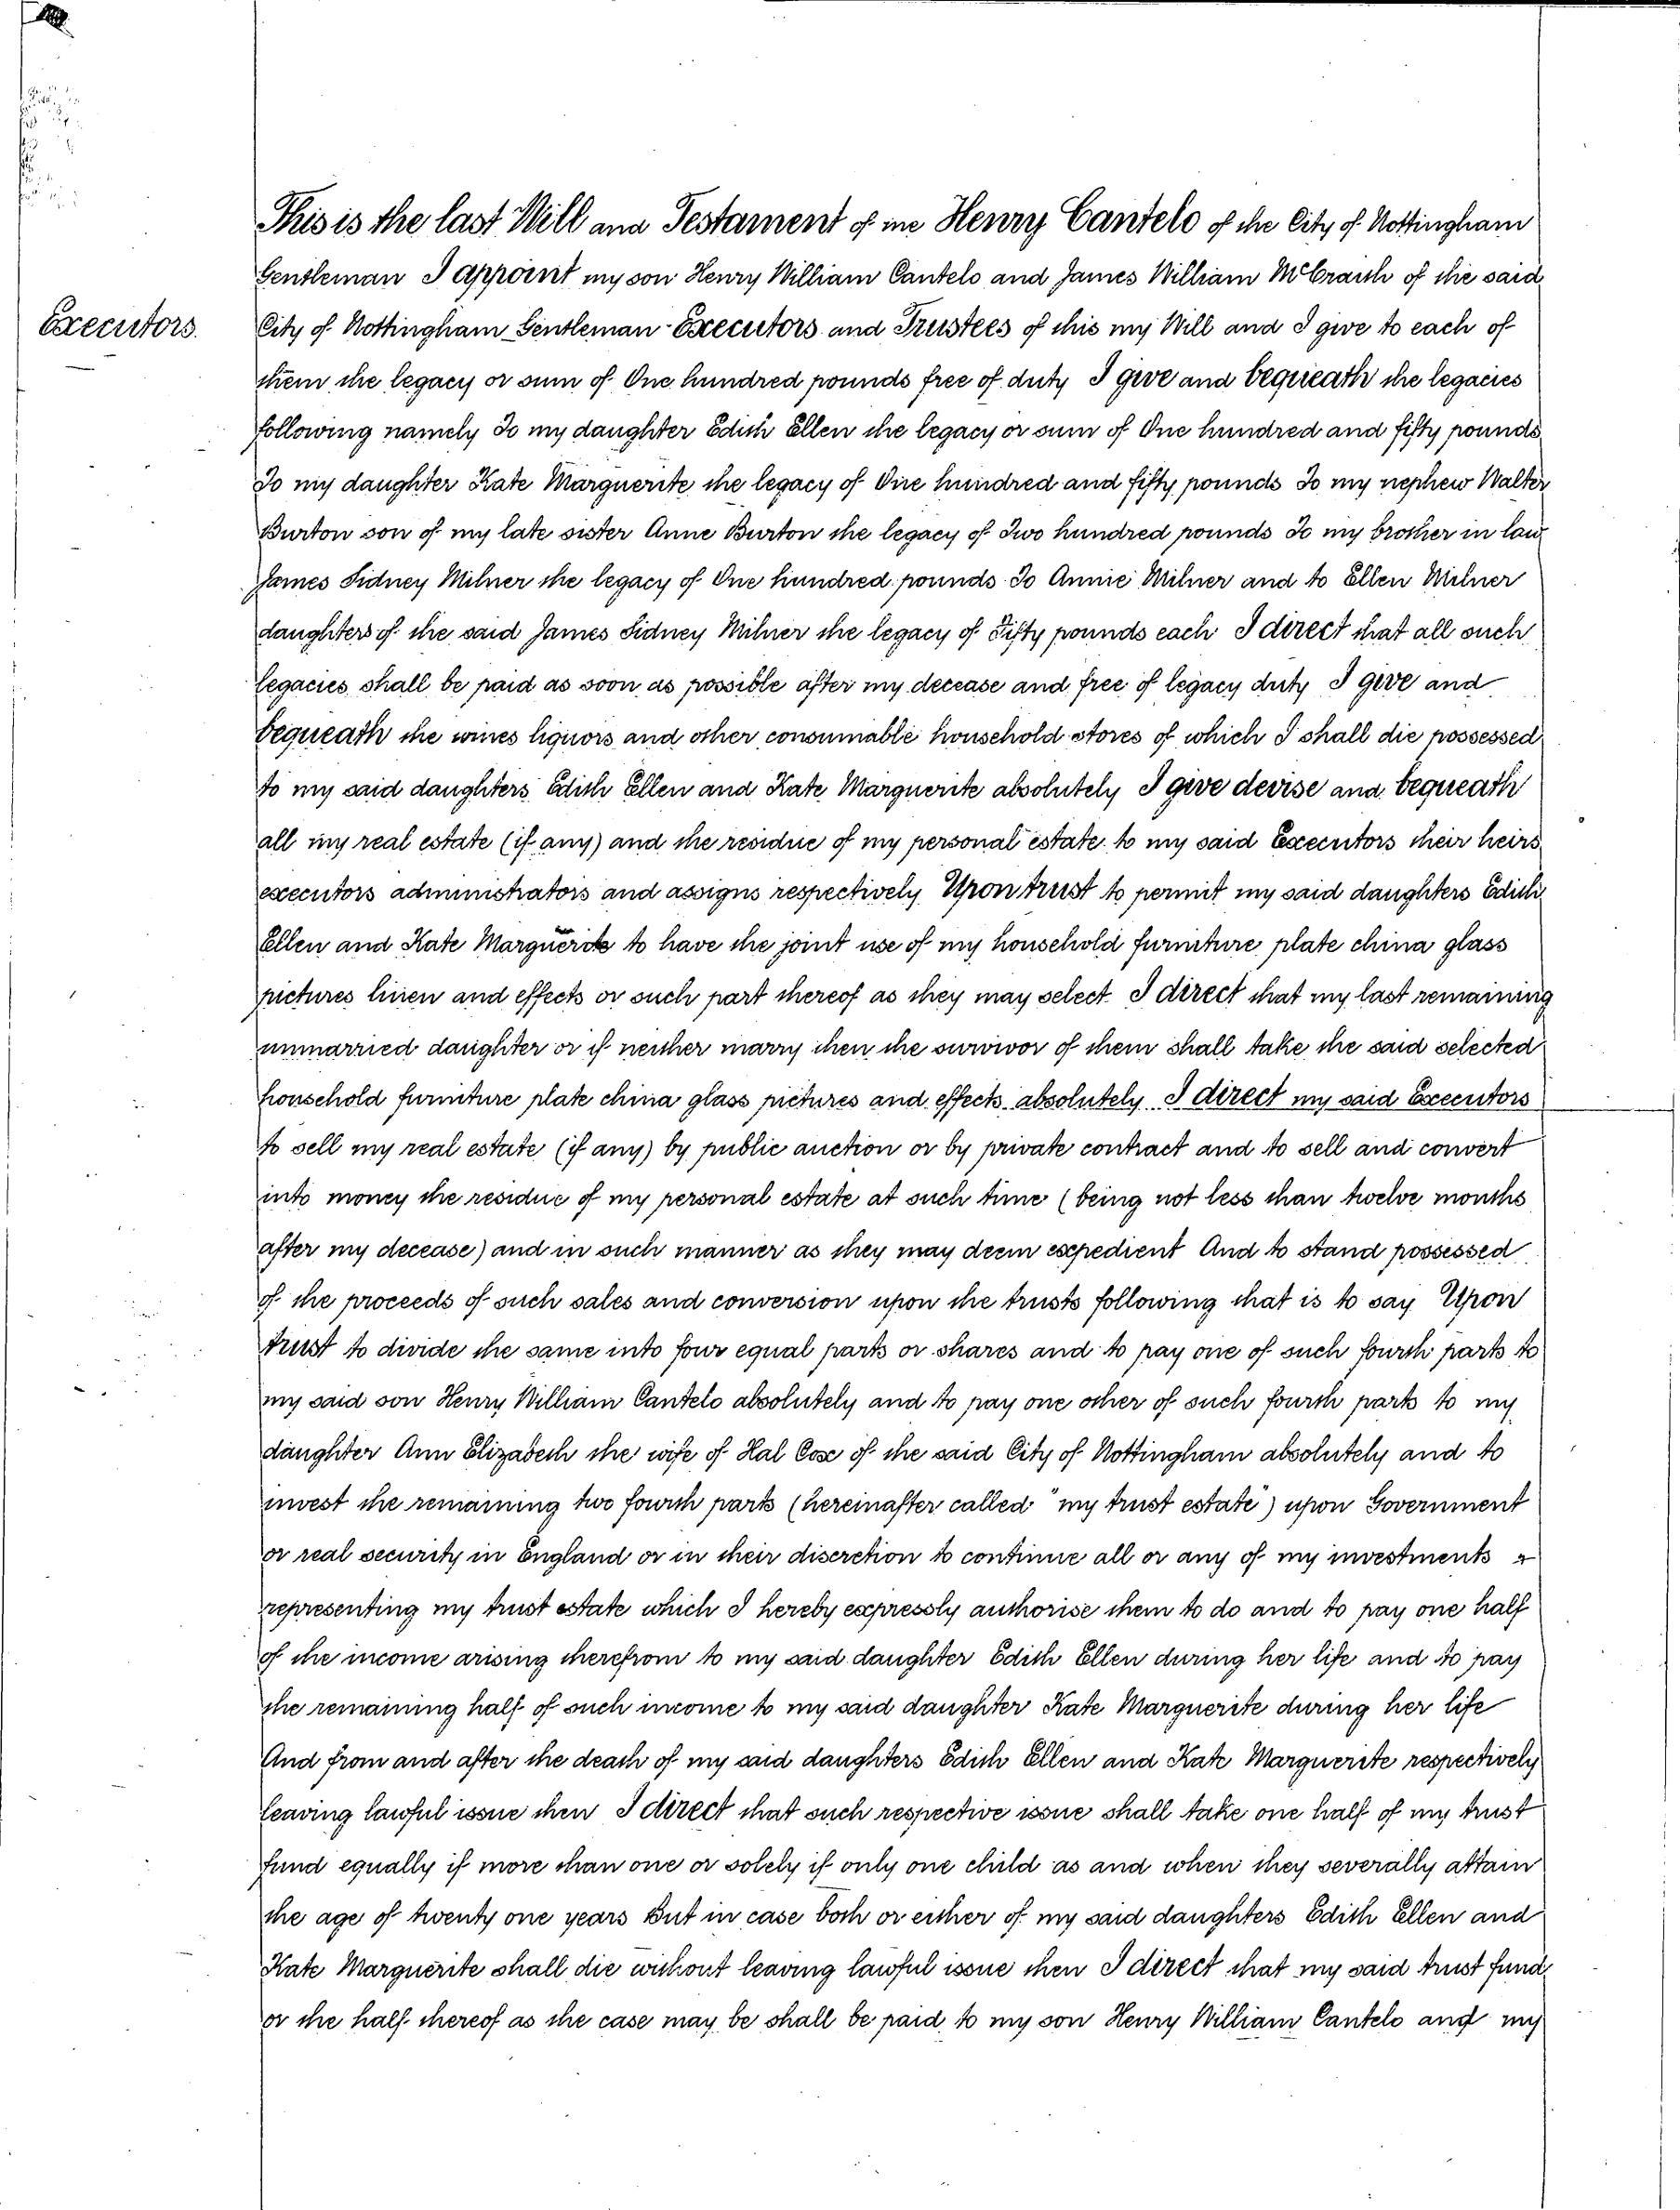 This is the last Will and Testament of me Henry Cantelo of the City of Nottingham
Gentleman I appoint my son Henry William Cantelo and James William McCraith of the said
Executors.
City of Nottingham Gentleman Executors and Trustees of this my Will and I give to each of
them the legacy or sum of One hundred pounds free of duty I give and bequeath the legacies
following namely To my daughter Edith Ellen the legacy or sum of One hundred and fifty pounds
To my daughter Kate Marguerite the legacy of One hundred and fifty pounds To my nephew Walter
Burton son of my late sister Anne Burton the legacy of Two hundred pounds To my brother in law
James Sidney Milner the legacy of One hundred pounds To Annie Milner and to Ellen Milner
daughters of the said James Sidney Milner the legacy of Fifty pounds each I direct that all such
legacies shall be paid as soon as possible after my decease and free of legacy duty I give and
bequeath the wines liquors and other consumable household stores of which I shall die possessed
to my said daughters Edith Ellen and Kate Marguerite absolutely I give devise and bequeath
all my real estate (if any) and the residue of my personal estate to my said Executors their heirs
executors administrators and assigns respectively Upon trust to permit my said daughters Edith
Ellen and Kate Marguerite to have the joint use of my household furniture plate china glass
pictures linen and effects or such part thereof as they may select I direct that my last remaining
unmarried daughter or if neither marry then the survivor of them shall take the said selected
household furniture plate china glass pictures and effects absolutely I direct my said Executors
to sell my real estate (if any) by public auction or by private contract and to sell and convert
into money the residue of my personal estate at such time (being not less than twelve months
after my decease) and in such manner as they may deem expedient And to stand possessed
of the proceeds of such sales and conversion upon the trusts following that is to say Upon
trust to divide the same into four equal parts or shares and to pay one of such fourth parts to
my said son Henry William Cantelo absolutely and to pay one other of such fourth parts to my
daughter Ann Elizabeth the wife of Hal Cox of the said City of Nottingham absolutely and to
invest the remaining two fourth parts (hereinafter called "my trust estate") upon Government
or real security in England or in their discretion to continue all or any of my investments
representing my trust estate which I hereby expressly authorise them to do and to pay one half
of the income arising therefrom to my said daughter Edith Ellen during her life and to pay
the remaining half of such income to my said daughter Kate Marguerite during her life
And from and after the death of my said daughters Edith Ellen and Kate Marguerite respectively
leaving lawful issue then I direct that such respective issue shall take one half of my trust
fund equally if more than one or solely if only one child as and when they severally attain
the age of twenty one years But in case both or either of my said daughters Edith Ellen and
Kate Marguerite shall die without leaving lawful issue then I direct that my said trust fund
or the half thereof as the case may be shall be paid to my son Henry William Cantelo and my